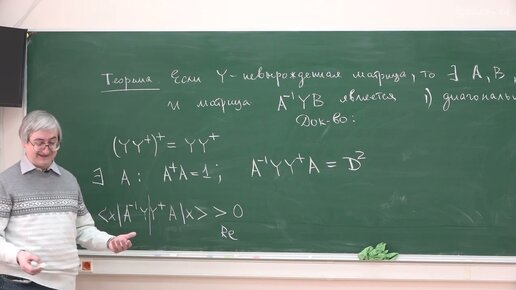 Теорема Если Y - невырожденная матрица, то ∃ A, B,
и матрица A⁻¹YB является 1) диагональ
Док-во:
(YY⁺)⁺ = YY⁺
∃ A: A⁺A = 1; A⁻¹YY⁺A = D²
<x|A⁻¹Y|Y⁺A|x> > 0